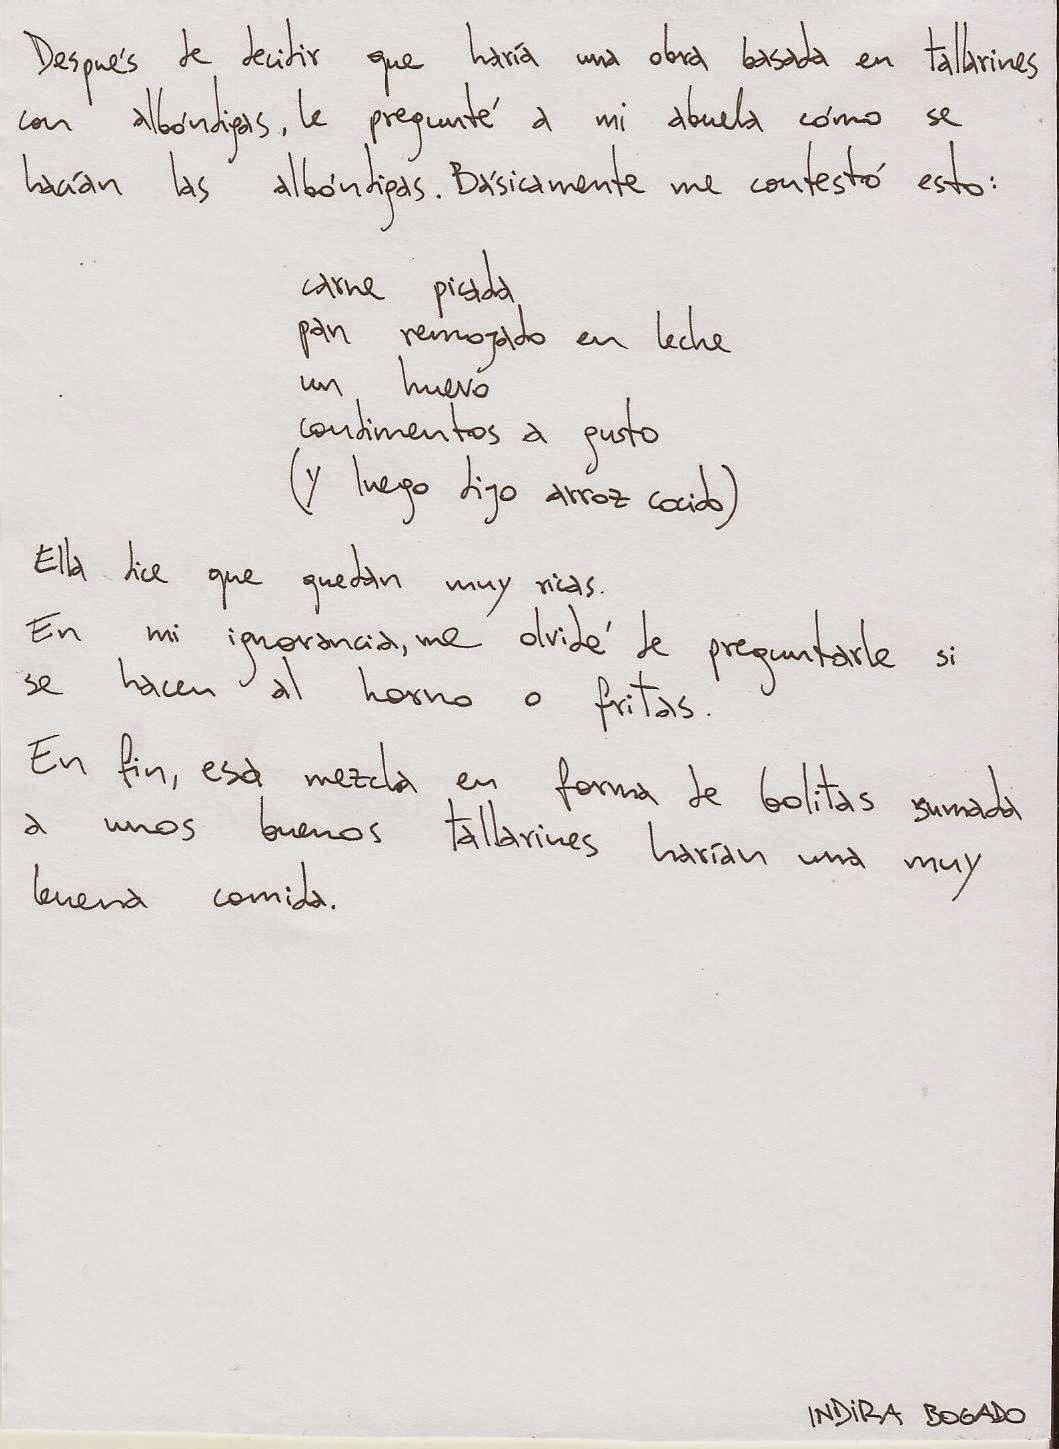 Después de decidir que haría una obra basada en tallarines
con albóndigas, le pregunté a mi abuela cómo se
hacían las albóndigas. Básicamente me contestó esto:
carne picada
pan remojado en leche
un huevo
condimentos a gusto
(y luego dijo arroz cocido)
Ella dice que quedan muy ricas.
En mi ignorancia, me olvidé de preguntarle si
se hacen al horno o fritas.
En fin, esa mezcla en forma de bolitas sumada
a unos buenos tallarines harían una muy
buena comida.
INDIRA BOGADO